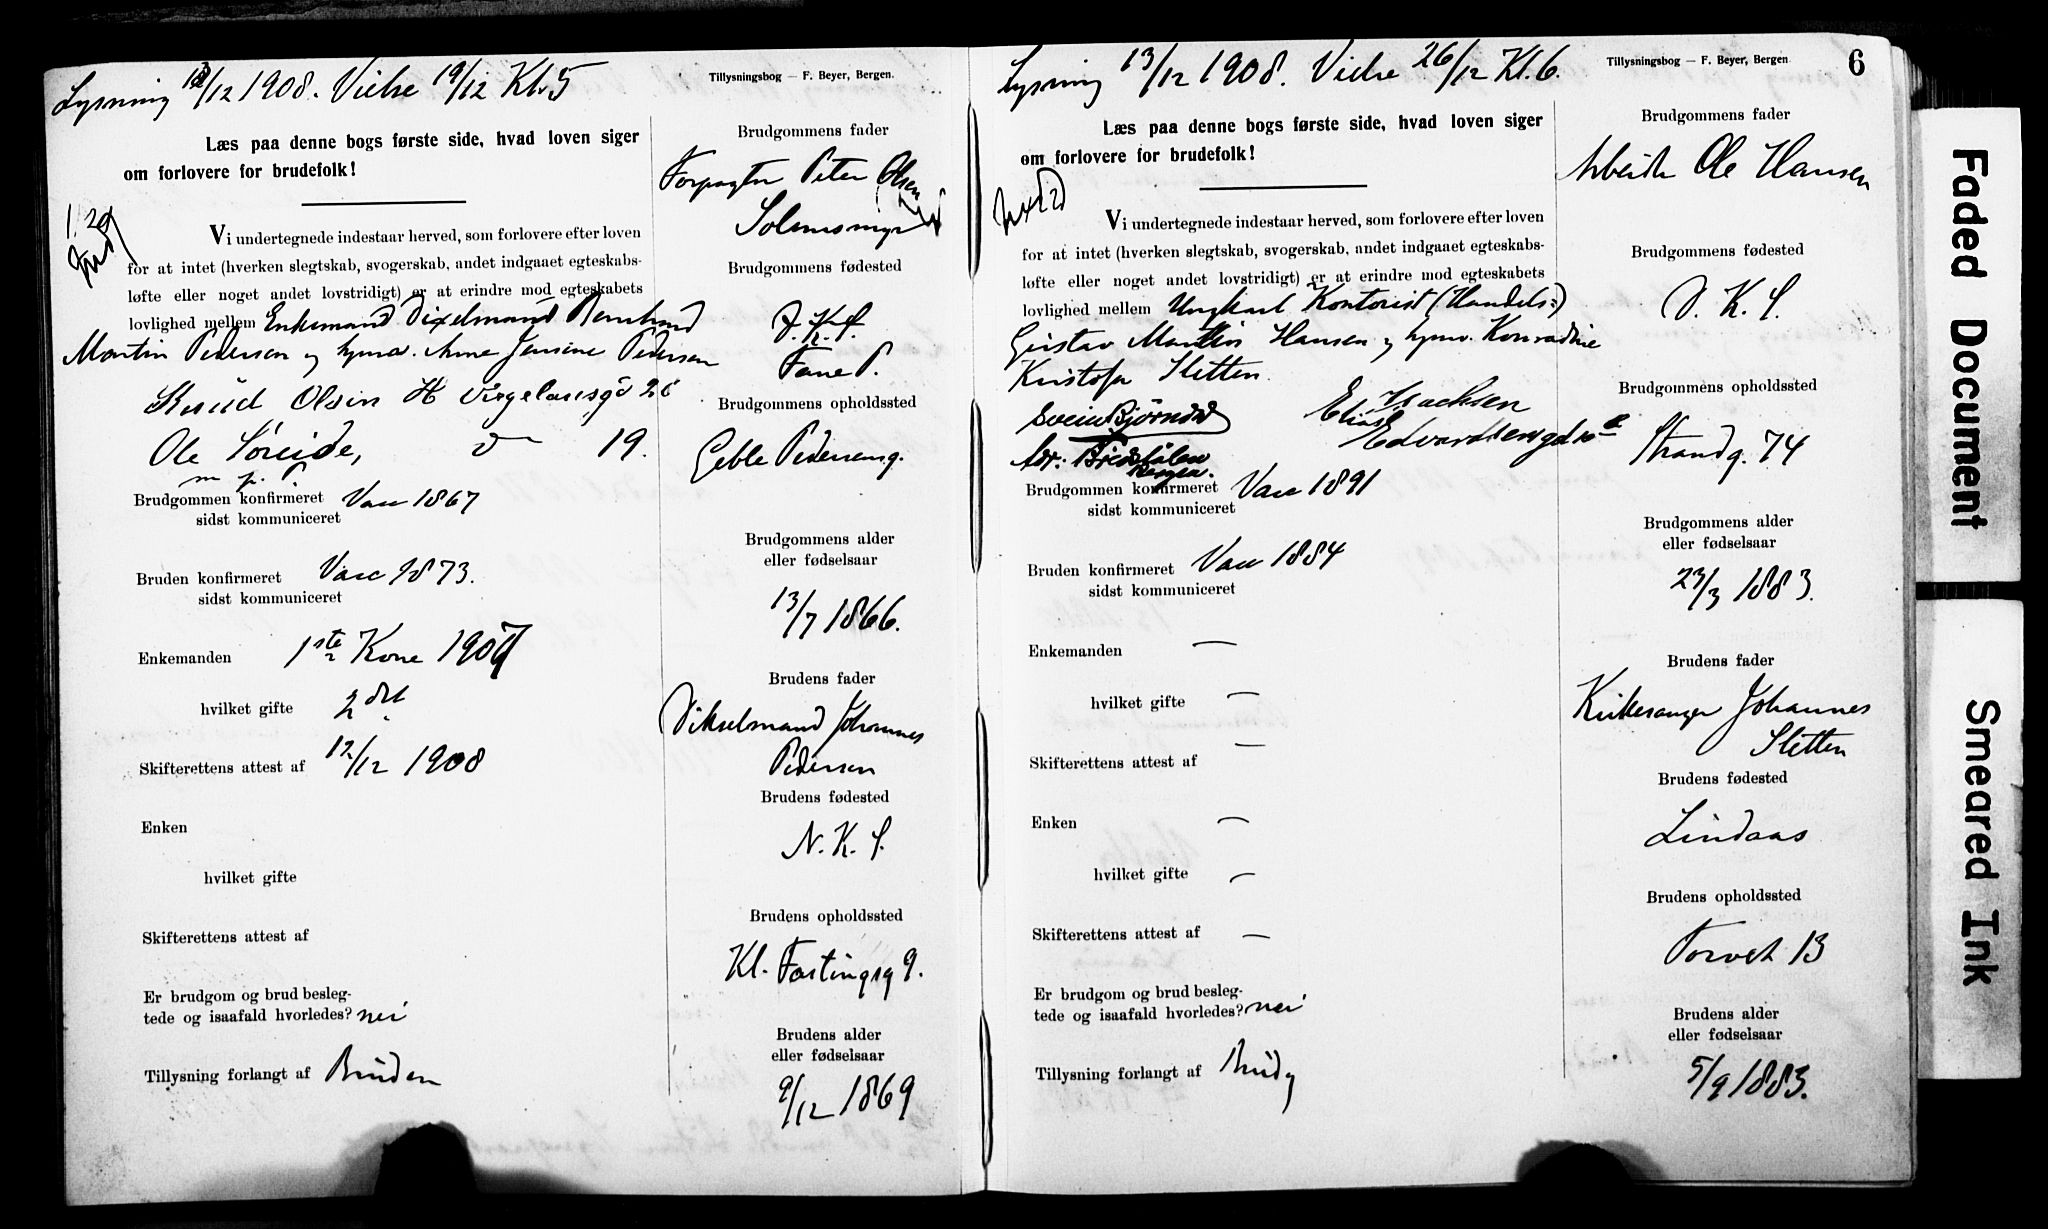 Lysning 13/12 1908. Vielse 19/12 Kl. 5
Tillysningsbog — F. Beyer, Bergen.
Læs paa denne bogs første side, hvad loven siger
om forlovere for brudefolk!
Vi undertegnede indestaar herved, som forlovere efter loven
for at intet (hverken slegtskab, svogerskab, andet indgaaet egteskabs-
løfte eller noget andet lovstridigt) er at erindre mod egteskabets
lovlighed mellem Enkemand Vixelmand
Martin Pedersen og Anne Jensine Pedersen
Knud Olsen H Vergelandsgd 26
Ole Søreide, 19.
m. p. P
Brudgommen konfirmeret Vaar 1867
sidst kommuniceret
Bruden konfirmeret Vaar 1873.
sidst kommuniceret
Enkemanden 1ste Kone 1907
hvilket gifte 2det
Skifterettens attest af 12/12 1908
Enken
hvilket gifte
Skifterettens attest af
Er brudgom og brud besleg-
tede og isaafald hvorledes? nei
Tillysning forlangt af Bruden
Brudgommens fader
Forpagter Peter Olsen
Brudgommens fødested
D. K. S.
Fane P.
Brudgommens opholdssted
Geble Pedersensg.
Brudgommens alder
eller fødselsaar
13/7 1866.
Brudens fader
Vikselmand Johannes
Pedersen
Brudens fødested
N. K. S.
Brudens opholdssted
Kl. Fastingsg 9.
Brudens alder
eller fødselsaar
9/12 1869
Lysning 13/12 1908. Vielse 26/12 Kl. 6.
Tillysningsbog — F. Beyer, Bergen
6
Læs paa denne bogs første side, hvad loven siger
om forlovere for brudefolk!
Vi undertegnede indestaar herved, som forlovere efter loven
for at intet (hverken slegtskab, svogerskab, andet indgaaet egteskabs-
løfte eller noget andet lovstridigt) er at erindre mod egteskabets
lovlighed mellem Ungkarl Kontorist (Handels-)
Gustav Martin Hansen og Konradine
Kristofa Sletten.
Svein Bjørndal
Elias Isachsen
Adr: Bergen.
Edvardsensgd 10
Brudgommen konfirmeret Vaar 1891
sidst kommuniceret
Bruden konfirmeret Vaar 1884
sidst kommuniceret
Enkemanden —
hvilket gifte —
Skifterettens attest af —
Enken —
hvilket gifte —
Skifterettens attest af —
Er brudgom og brud besleg-
tede og isaafald hvorledes? nei
Tillysning forlangt af Brudg
Brudgommens fader
Arbeider Ole Hansen
Brudgommens fødested
D. K. S.
Brudgommens opholdssted
Strandg. 74
Brudgommens alder
eller fødselsaar
23/3 1883.
Brudens fader
Kirkesanger Johannes
Sletten
Brudens fødested
Lindaas
Brudens opholdssted
Torvet 13
Brudens alder
eller fødselsaar
5/9 1883.
Faded Document
Smeared Ink